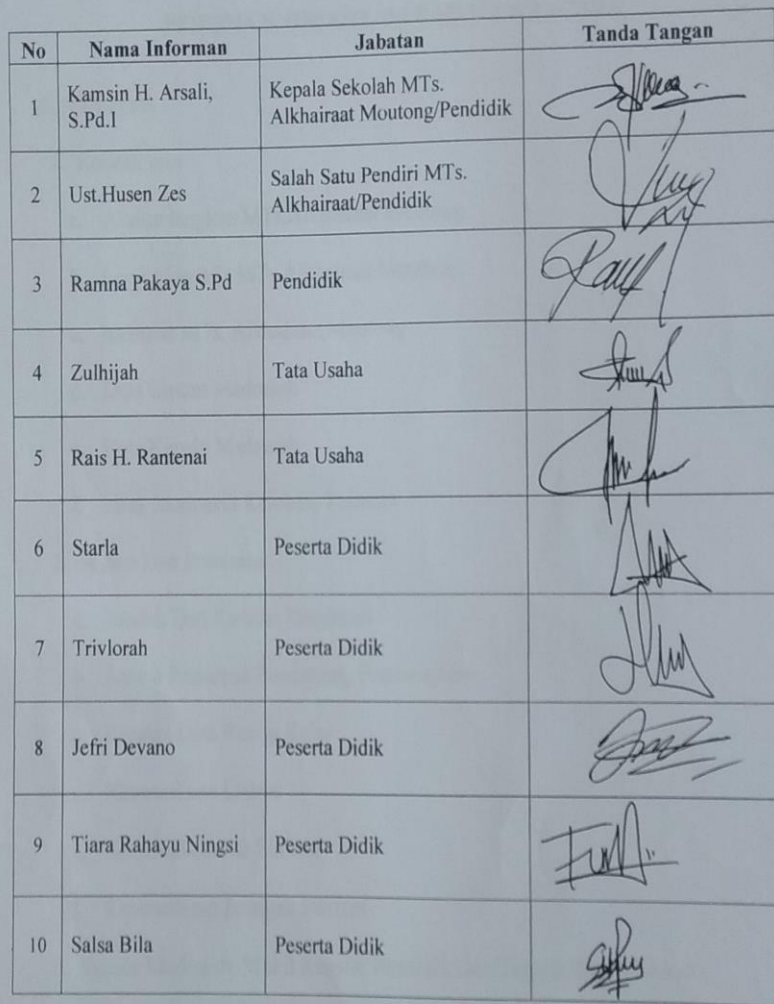 No Nama Informan Jabatan Tanda Tangan
1 Kamsin H. Arsali, S.Pd.I Kepala Sekolah MTs. Alkhairaat Moutong/Pendidik
2 Ust.Husen Zes Salah Satu Pendiri MTs. Alkhairaat/Pendidik
3 Ramna Pakaya S.Pd Pendidik
4 Zulhijah Tata Usaha
5 Rais H. Rantenai Tata Usaha
6 Starla Peserta Didik
7 Trivlorah Peserta Didik
8 Jefri Devano Peserta Didik
9 Tiara Rahayu Ningsi Peserta Didik
10 Salsa Bila Peserta Didik